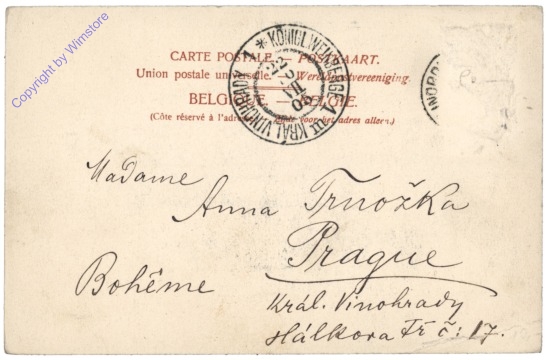 Copyright by Wimstore
CARTE POSTALE. POSTKAART.
Union postale universelle.
BELGIQUE. BELGIE.
(Côte réservé à l'adresse) voor het adres alleen.)
* KÖNIGL. WEINBERGE 1 * KRÁL. VINOHRADY 1
VII
05
Madame
Anna Trnožka
Prague
Bohême
Král. Vinohrady
Hálkova Tř č: 17.